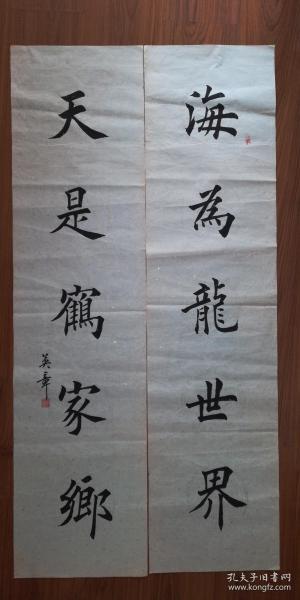 海為龍世界
天是鶴家鄉
英章
孔夫子旧书网